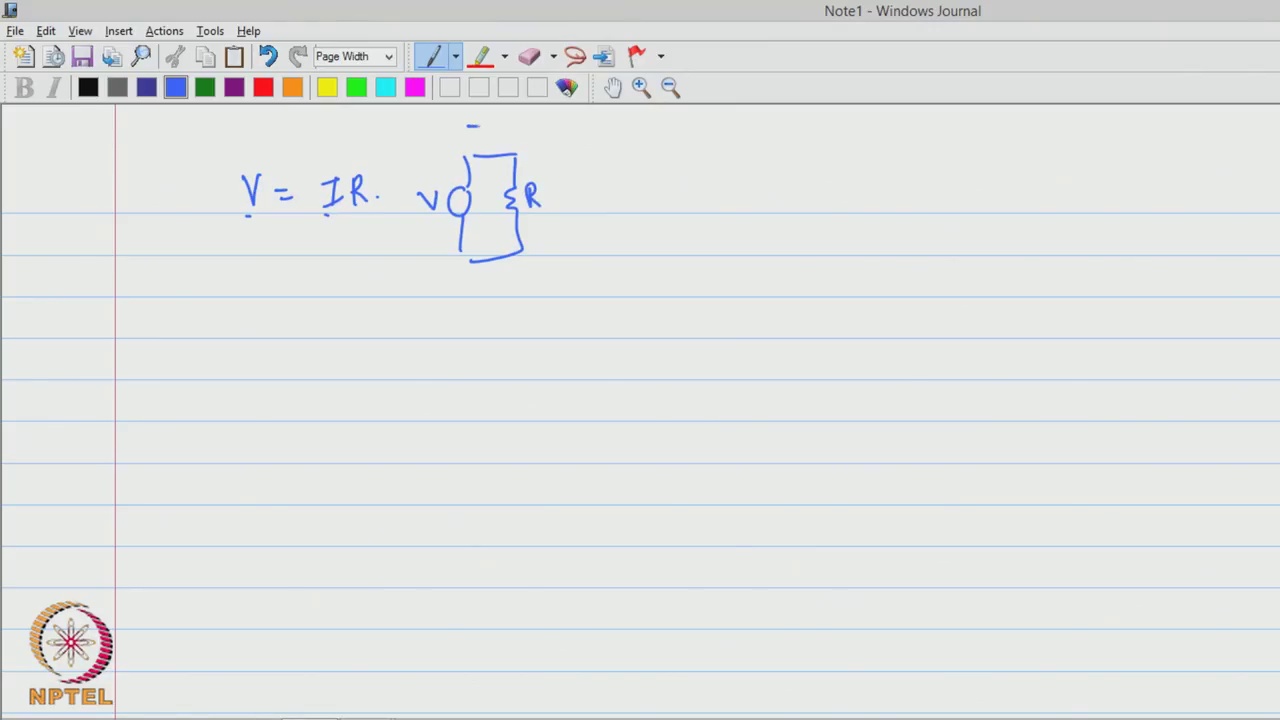 Note1 - Windows Journal
File Edit View Insert Actions Tools Help
Page Width
B I
V = IR. V R
NPTEL